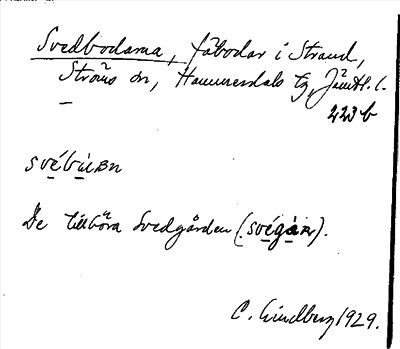 Svedbodarna, fäbodar i Strand,
Ströms sn, Hammerdals tg, Jämtl. l.
223 b
De tillhöra Svedgården
C. Lindberg 1929.